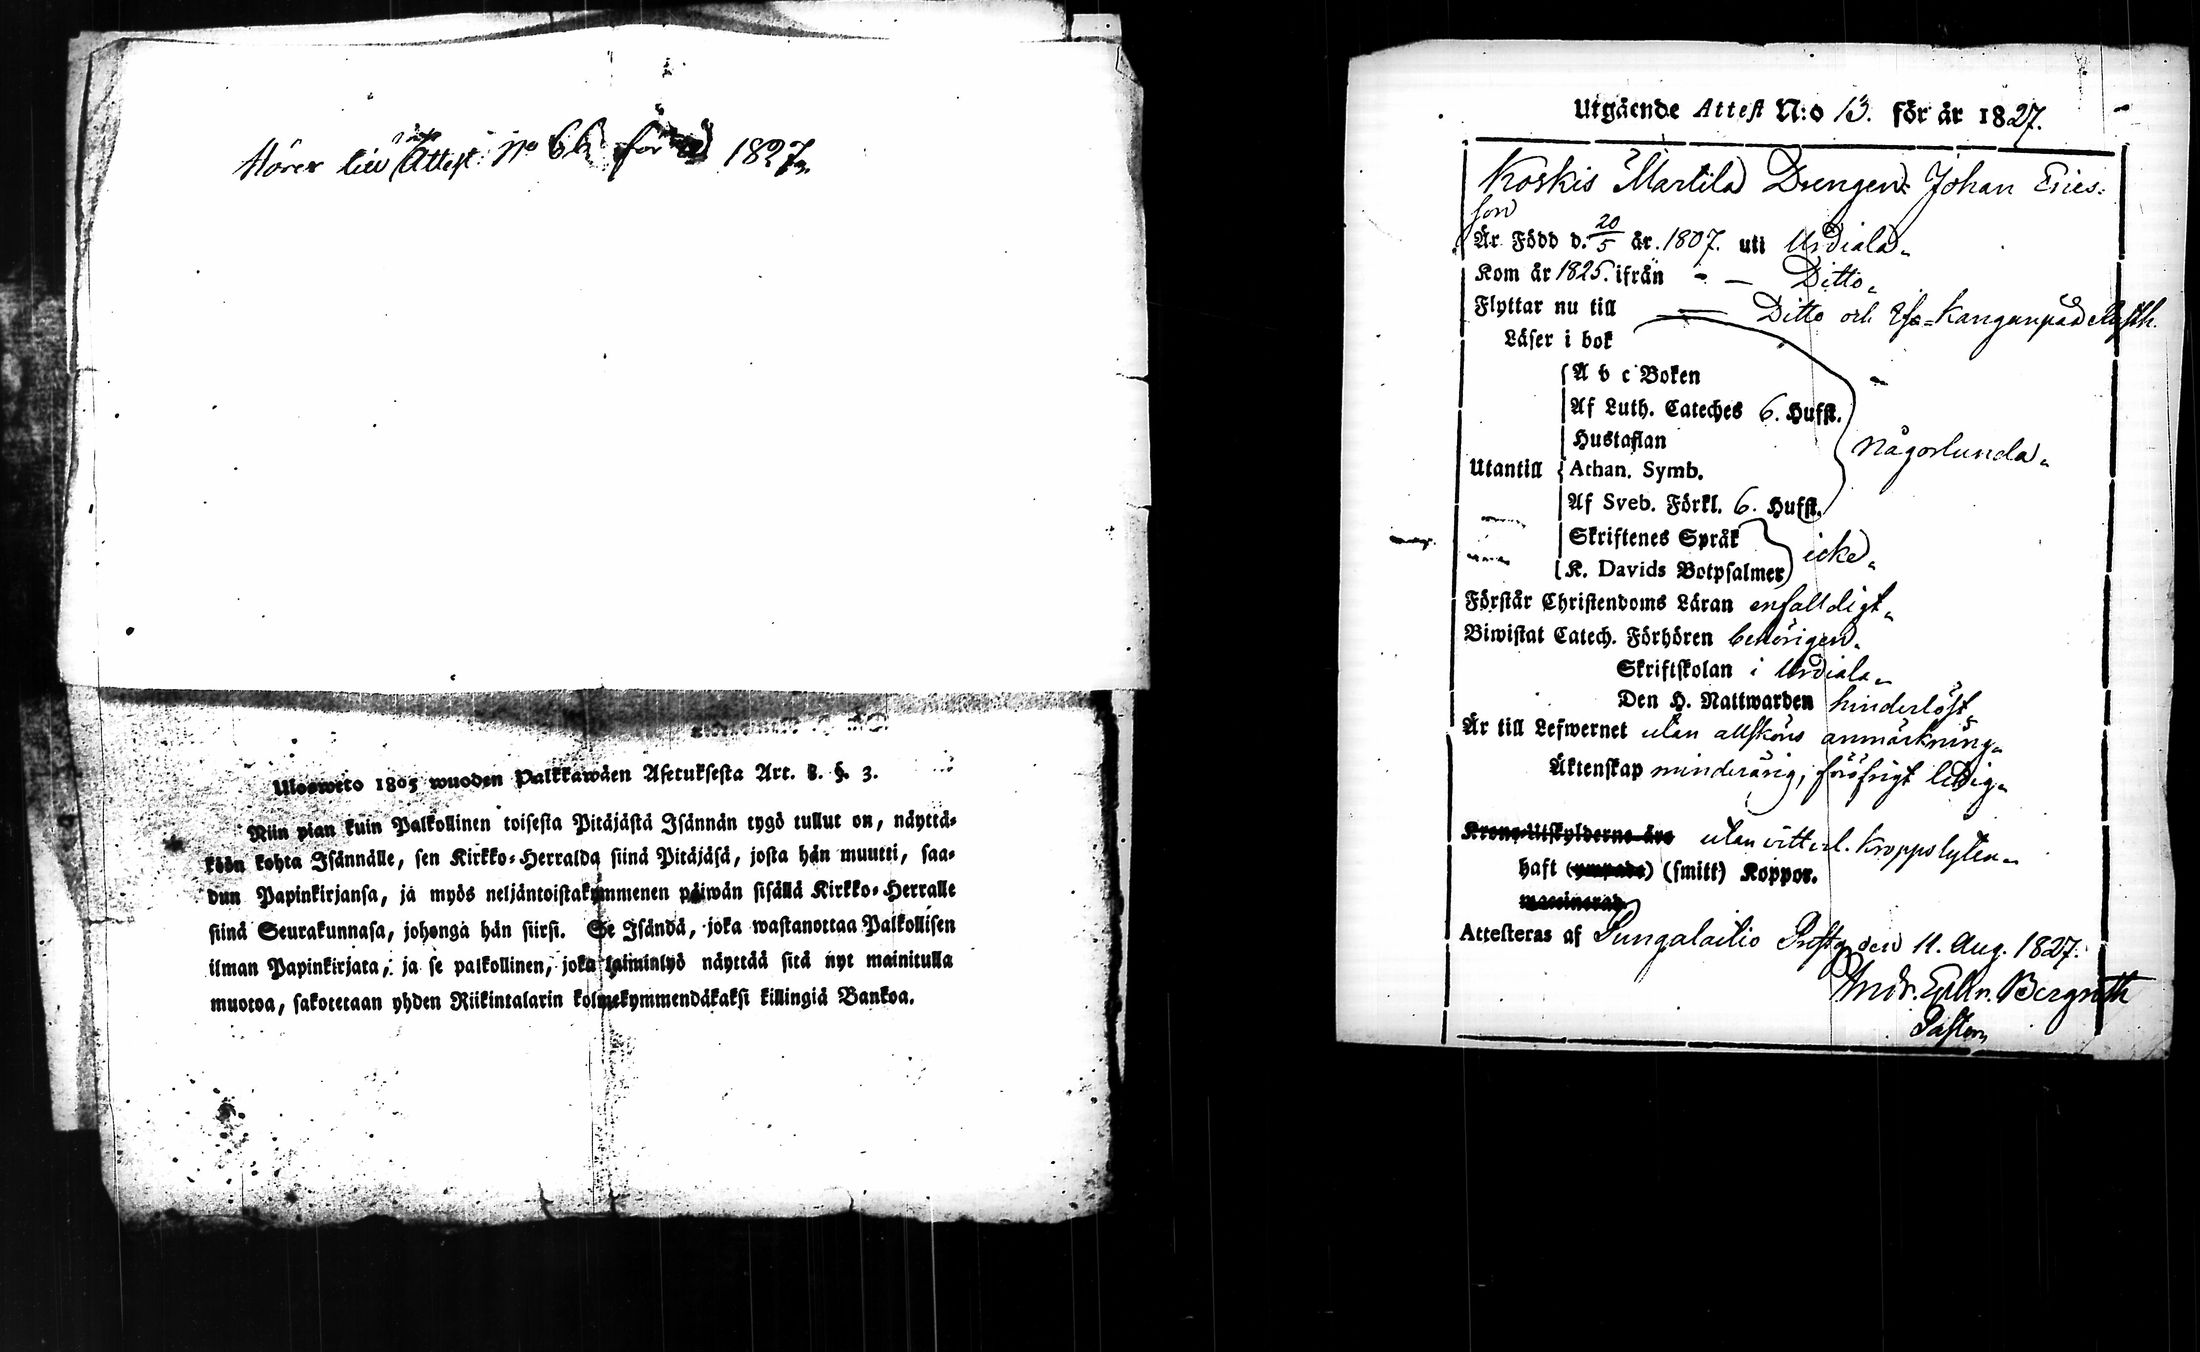 Hörer till Attest No 66 för 1827.
Uloswéto 1805 wuoden Palkkawäen Asetuksesta Art. 8. §. 3.
Niin pian kuin Palkollinen toisesta Pitäjästä Isännän tygö tullut on, näyttä-
köön kohta Isännälle, sen Kirkko-Herralda siinä Pitäjäsä, josta hän muutti, saa-
dun Papinkirjansa, ja myös neljäntoistakymmenen päiwän sisällä Kirkko-Herralle
siinä Seurakunnasa, johonga hän siirsi. Se Isändä, joka wastanottaa Palkollisen
ilman Papinkirjata, ja se palkollinen, joka laiminlyö näyttää sitä nyt mainitulla
muotoa, sakotetaan yhden Riikintalarin kolmekymmendäkaksi killingiä Bankoa.
Utgående Attest N:o 13. för år 1827.
Koskis Martila Drengen Johan Erics-
son
Är Född d. 20/5 år 1807. uti Urdiala
Kom år 1825. ifrån - — Ditto
Flyttar nu till — Ditto och
Läser i bok
A b c Boken
Af Luth. Cateches 6. Hufst.
Hustaflan
någorlunda
Utantill Athan. Symb.
Af Sveb. Förkl. 6. Hufst.
Skriftenes Språk
icke
K. Davids Botpsalmer
Förstår Christendoms Läran enfalldigt
Biwistat Catech. Förhören behörigen
Skriftskolan i Urdiala
Den H. Nattwarden hinderlöst
Är till Lefwernet utan allsköns anmärkning
Äktenskap minderårig, föröfrigt ledig
Krono-Utskylderne äro utan vitterl. kroppslyten
haft (ympade) (smitt) Koppor.
waccinerad
Attesteras af Sungalaitio Prostg den 11. Aug. 1827.
Bergroth
Pastor